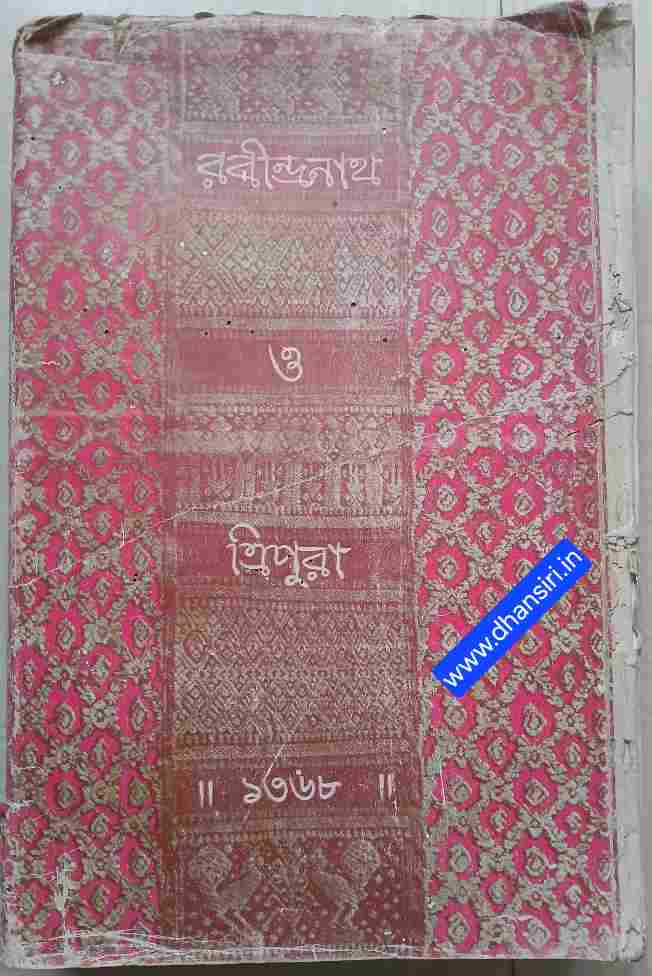 রবীন্দ্রনাথ
ও
ত্রিপুরা
www.dhansiri.in
॥ ১৩৬৮ ॥